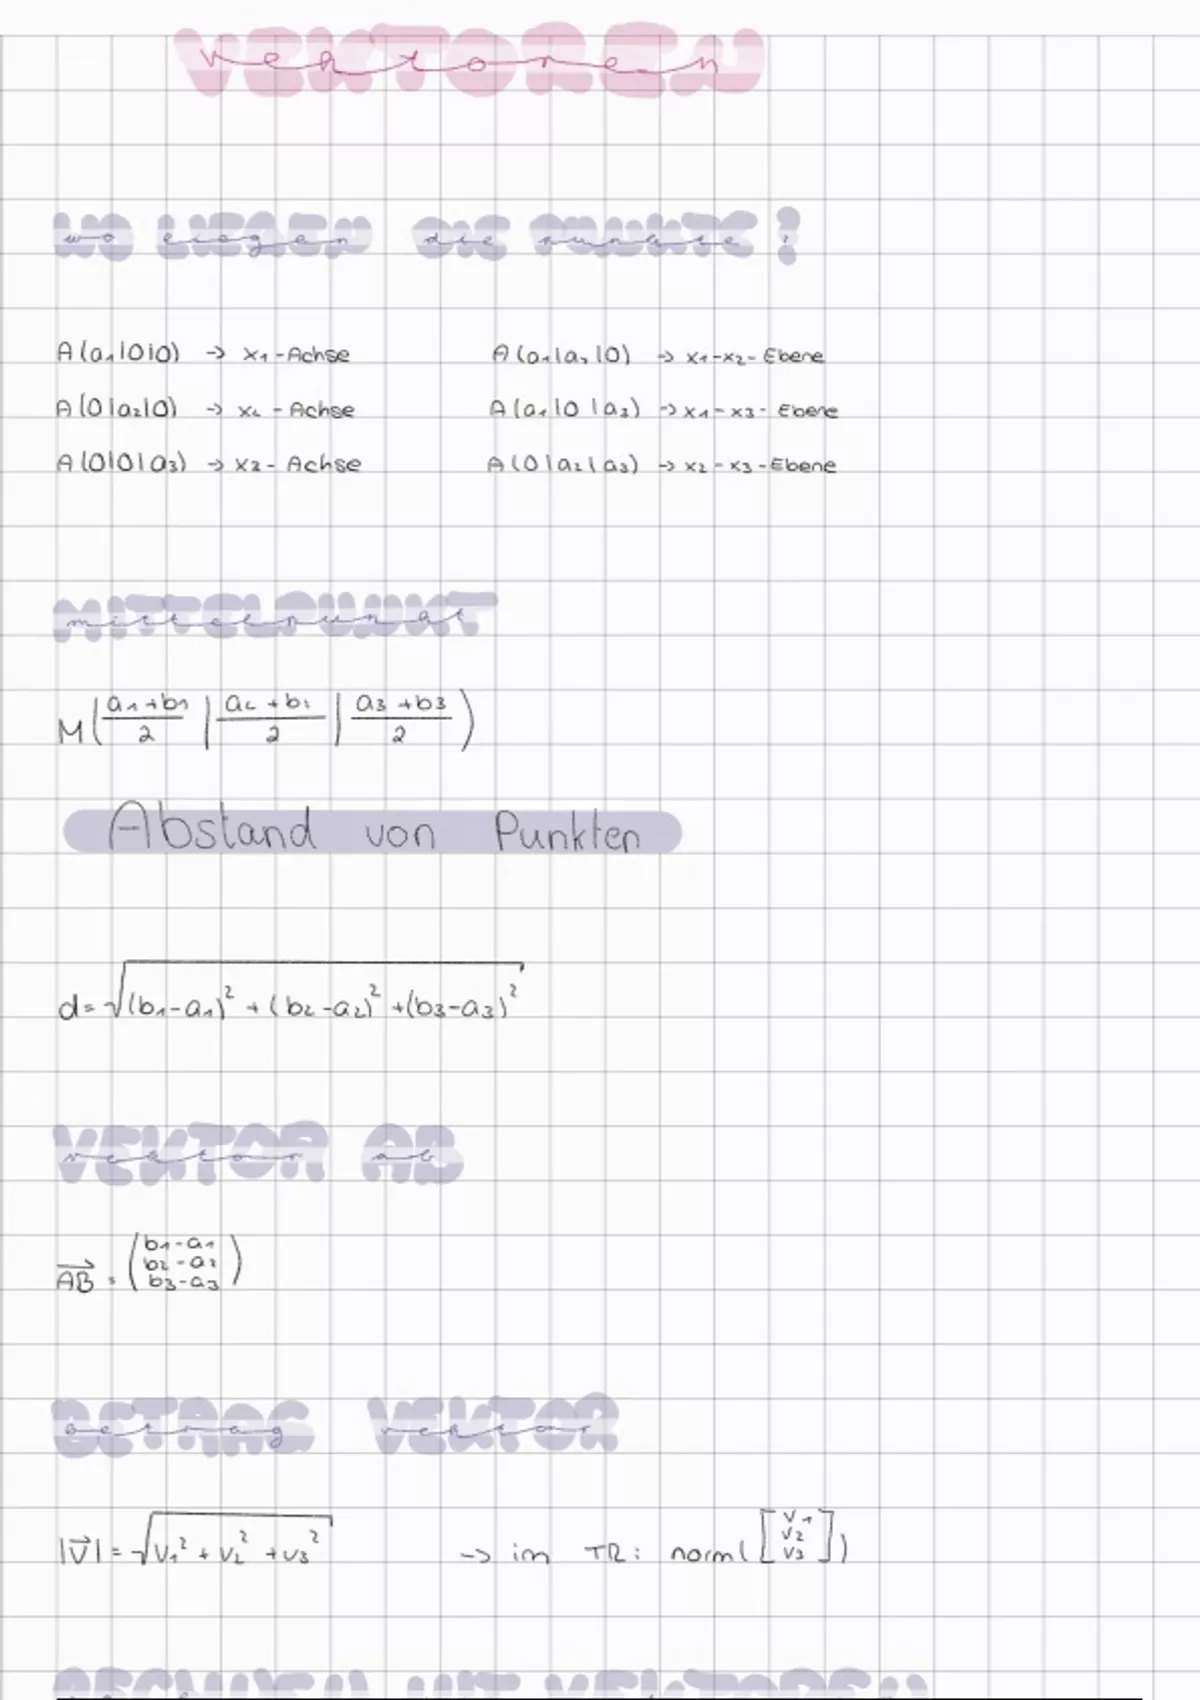 Vektoren
wo liegen die Punkte?
A(a₁|0|0) → x₁-Achse
A(0|a₂|0) → x₂ - Achse
A(0|0|a₃) → x₃- Achse
A(a₁|a₂|0) → x₁-x₂- Ebene
A(a₁|0|a₃) → x₁-x₃- Ebene
A(0|a₂|a₃) → x₂-x₃-Ebene
Mittelpunkt
M((a₁+b₁)/2 | (a₂+b₂)/2 | (a₃+b₃)/2)
Abstand von Punkten
d=√((b₁-a₁)²+(b₂-a₂)²+(b₃-a₃)²)
Vektor AB
b₁-a₁
b₂-a₂
AB⃗ = b₃-a₃
Betrag Vektor
|v⃗|=√(v₁²+v₂²+v₃²) → im TR: norm([v₁ v₂ v₃])
RECHNEN MIT VEKTOREN